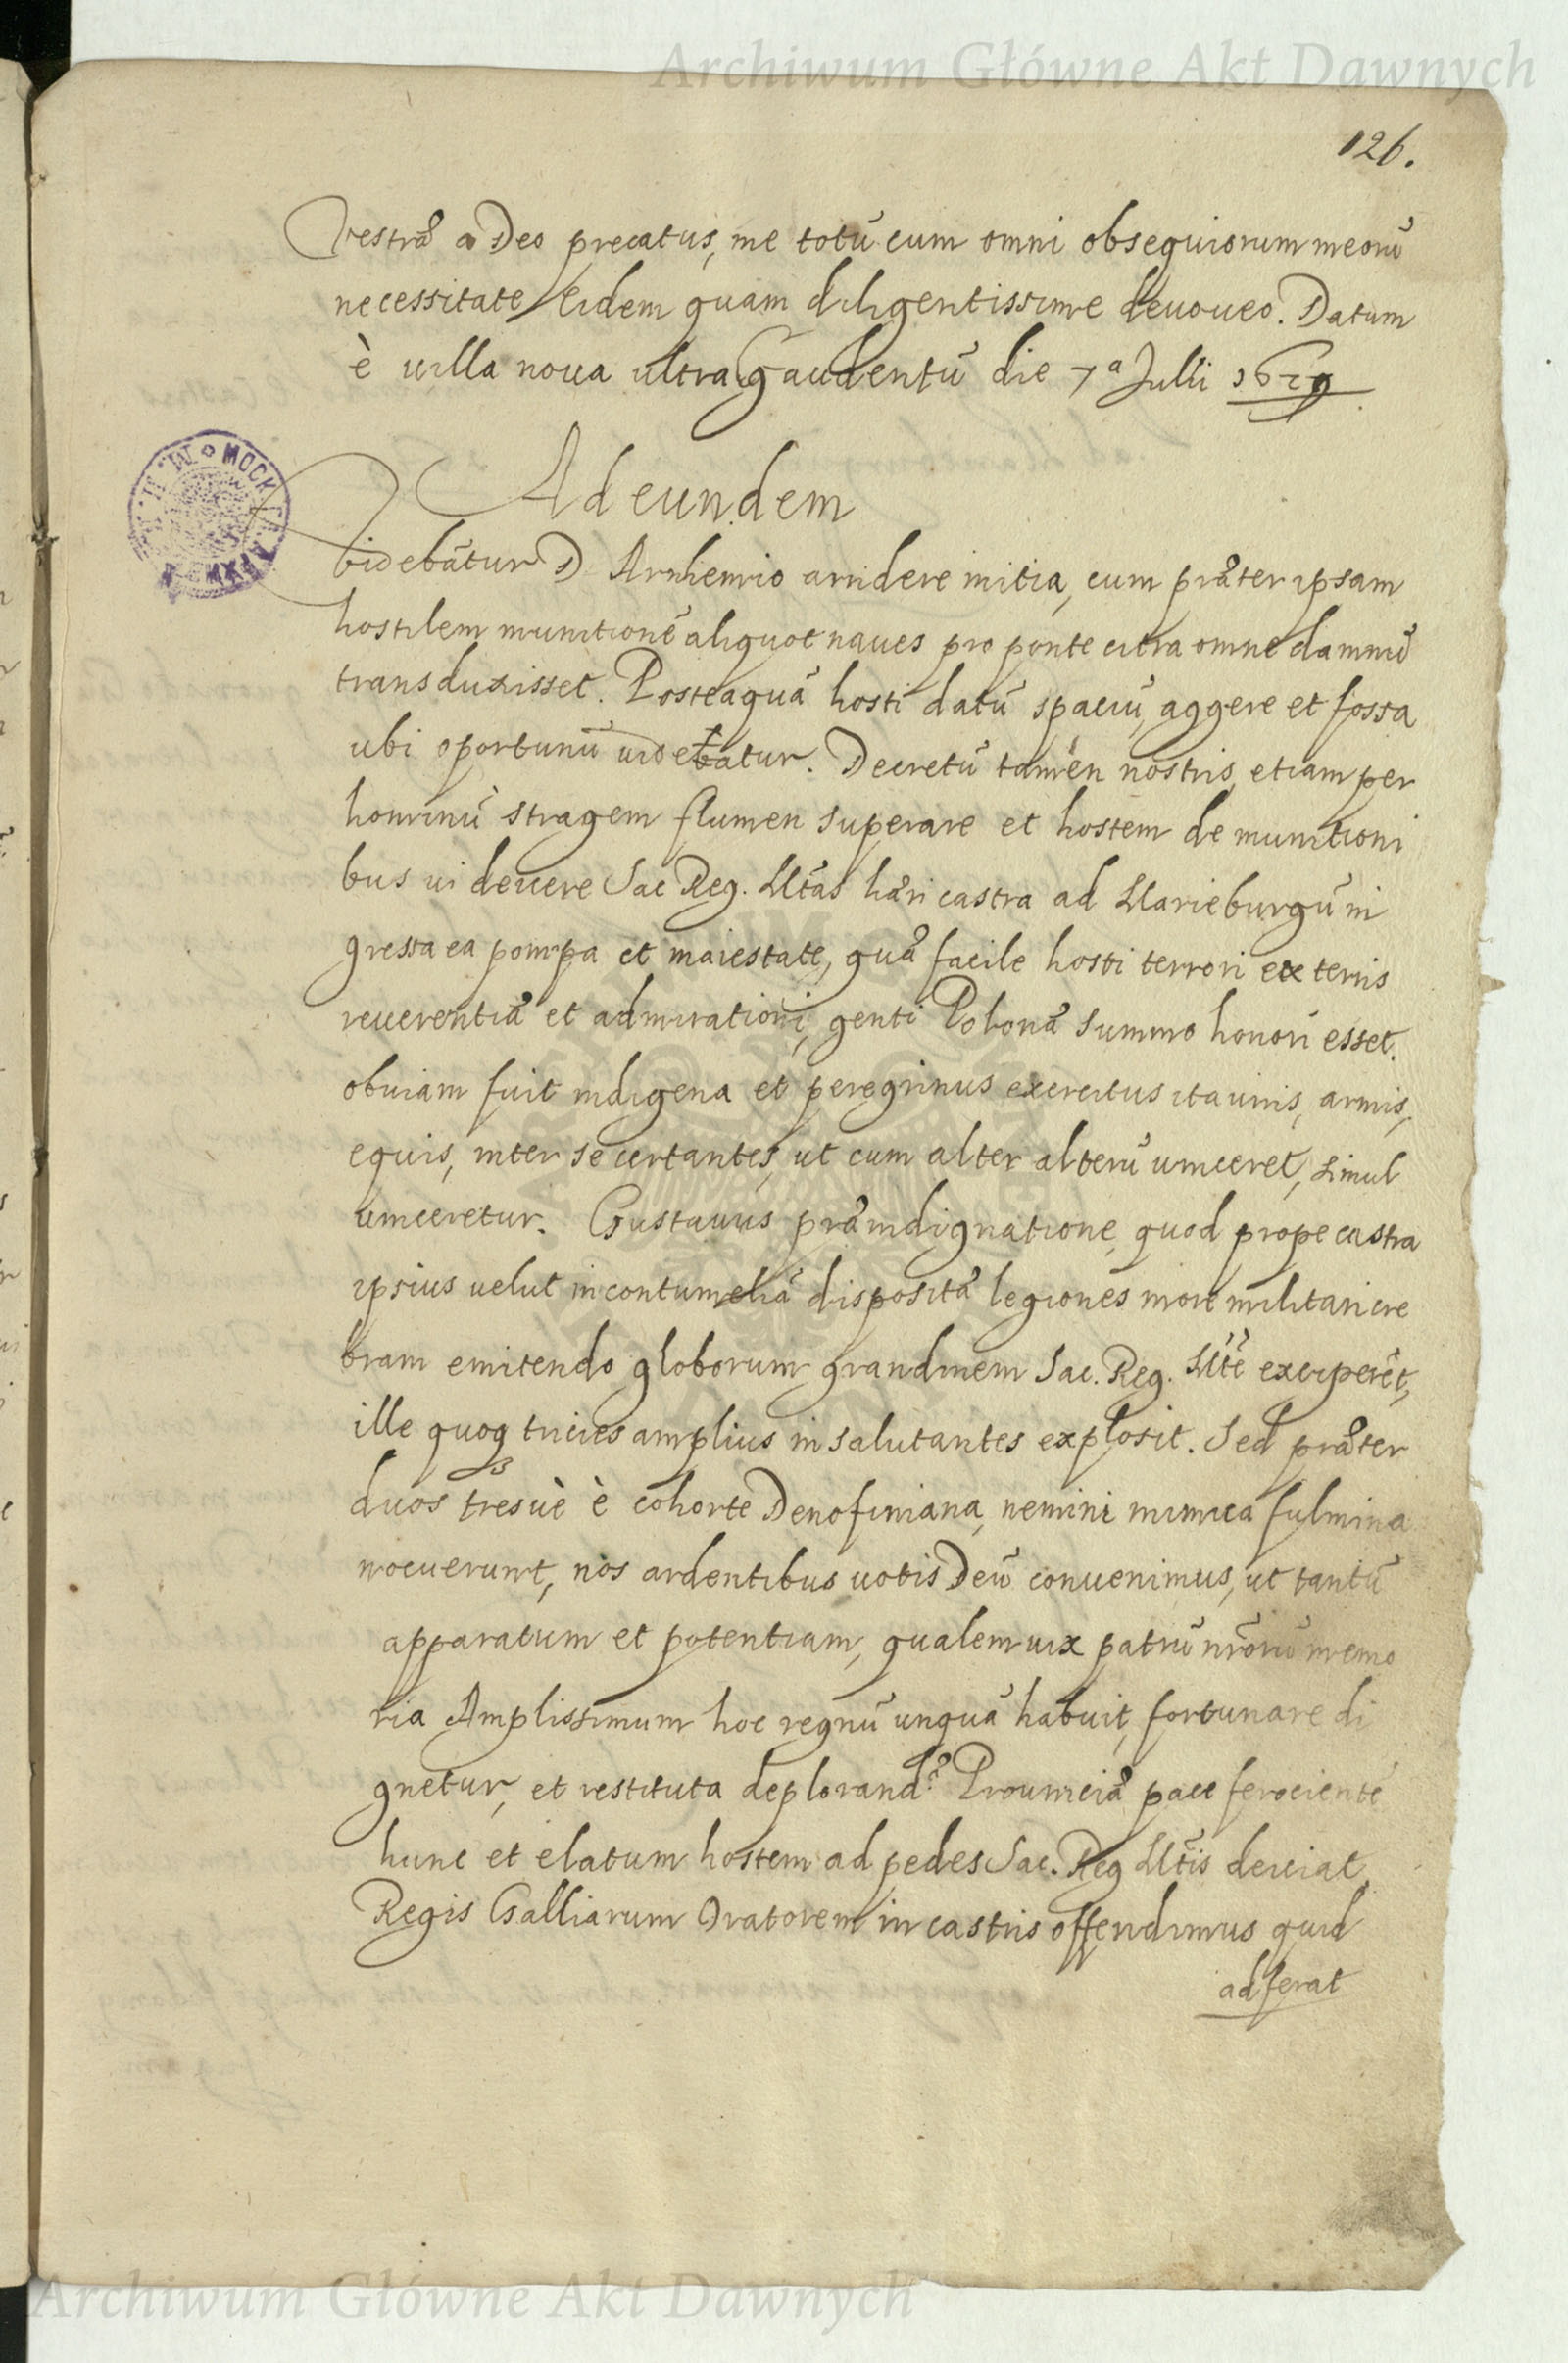 Archiwum Główne Akt Dawnych
126.
Vestræ a Deo precatus, me totū cum omni obsequiorum meorū
necessitate Eidem quam diligentissime deuoueo. Datum
è uilla noua ultra Gaudentū die 7ª Julii 1629
Ad eundem
Videbātur D Arnhemio arridere initia, cum præter ipsam
hostilem munitionē aliquot naues pro ponte citra omne damnū
transduxisset. Posteaquā hosti datū spaciū, aggere et fossa
ubi oportunū uidebatur. Decretū tamen nostris, etiam per
hominū stragem flumen superare et hostem de munitioni
bus ui deiicere Sac Reg. Mtās hæri castra ad Marieburgū in
gressa ea pompa et maiestate, quæ facile hosti terrori exteris
reuerentiæ et admirationi, genti Polonæ summo honori esset.
obuiam fuit indigena et peregrinus exercitus ita uiris, armis,
equis, inter se certantes, ut cum alter alterū uinceret, simul
uinceretur. Gustauus præ indignatione, quod prope castra
ipsius uelut in contumeliā dispositæ legiones more militari cre
bram emitendo globorum grandinem Sac. Reg. Mtē exciperēt,
ille quoqз tricies amplius in salutantes explosit. Sed præter
duos tresuè è cohorte Denofiniana, nemini inimica fulmina
nocuerunt, nos ardentibus uotis Deū conuenimus, ut tantū
apparatum et potentiam, qualem uix patrū nrōrū memo
ria Amplissimum hoc regnū unquā habuit, fortunare di
gnetur, et restituta deplorandæ Prouinciæ pace ferocientē
hunc et elatum hostem ad pedes Sac. Reg Mtīs deiiciat
Regis Galliarum Oratorem in castris offendimus quid
adferat
Archiwum Główne Akt Dawnych